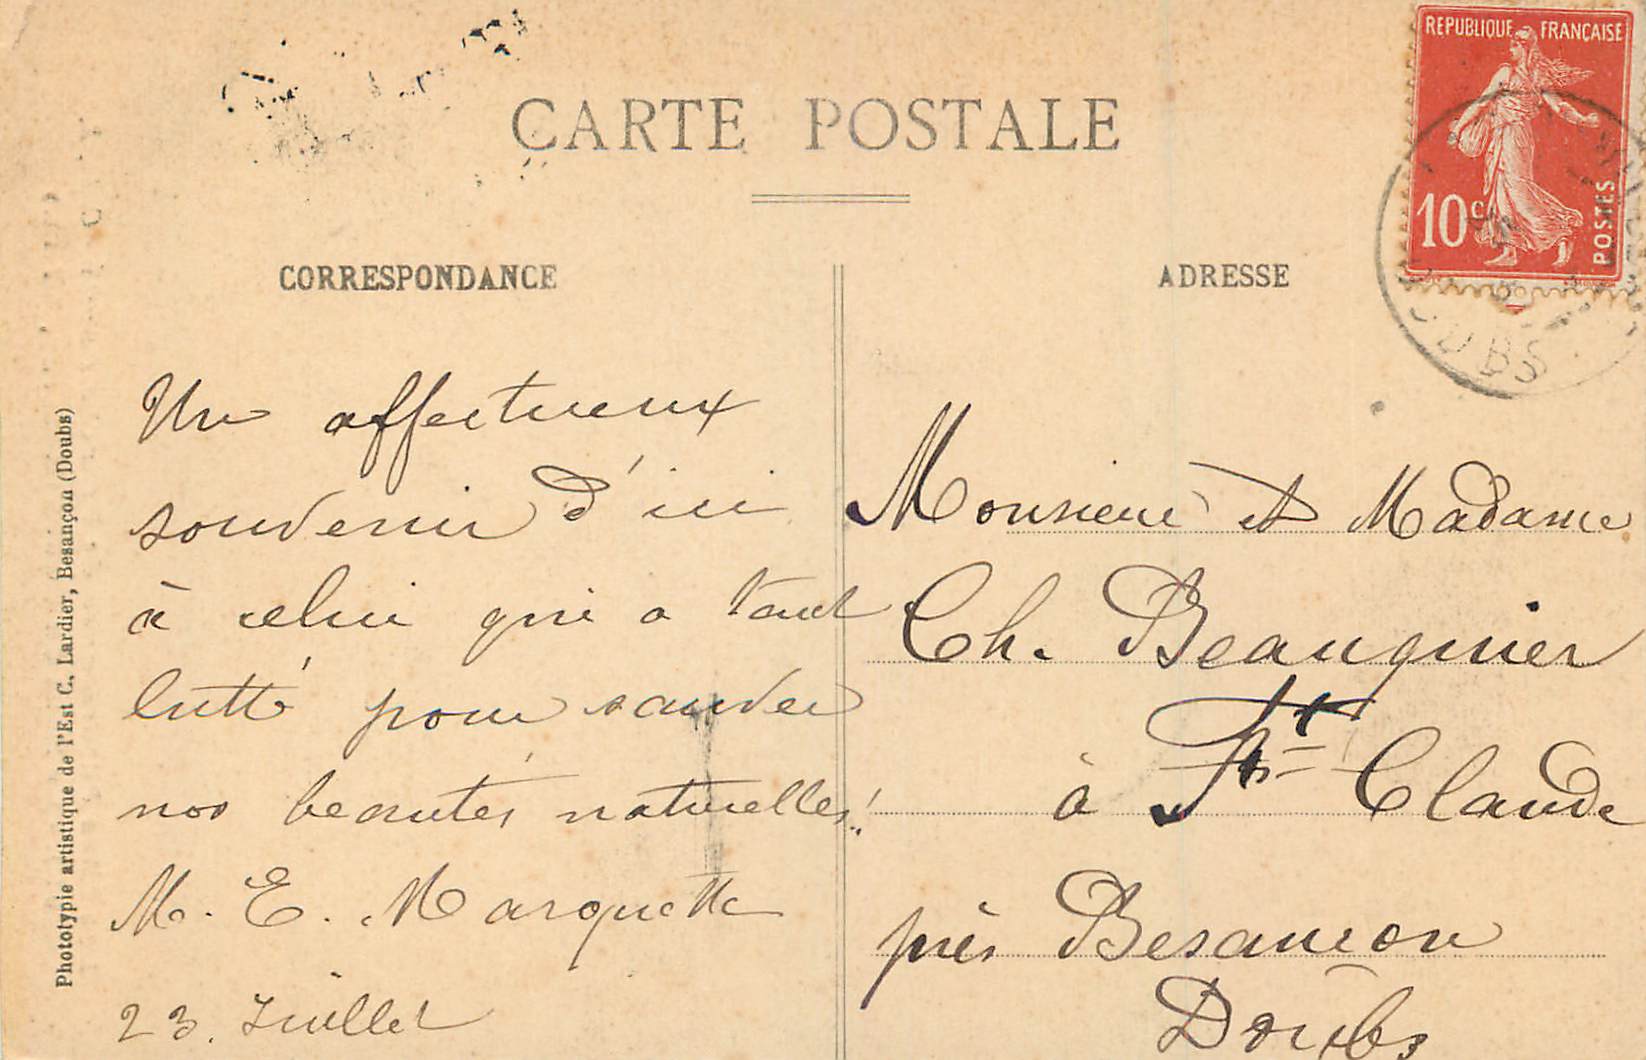 CARTE POSTALE
REPUBLIQUE FRANÇAISE
10c
POSTES
CORRESPONDANCE
Un affectueux
souvenir d'ici
à celui qui a tant
lutté pour sauver
nos beautés naturelles!
M. E. Marquette
23. Juillet
ADRESSE
Monsieur et Madame
Ch. Beauquier
à St Claude
près Besancon
Doubs
Phototypie artistique de l'Est C. Lardier, Besançon (Doubs)